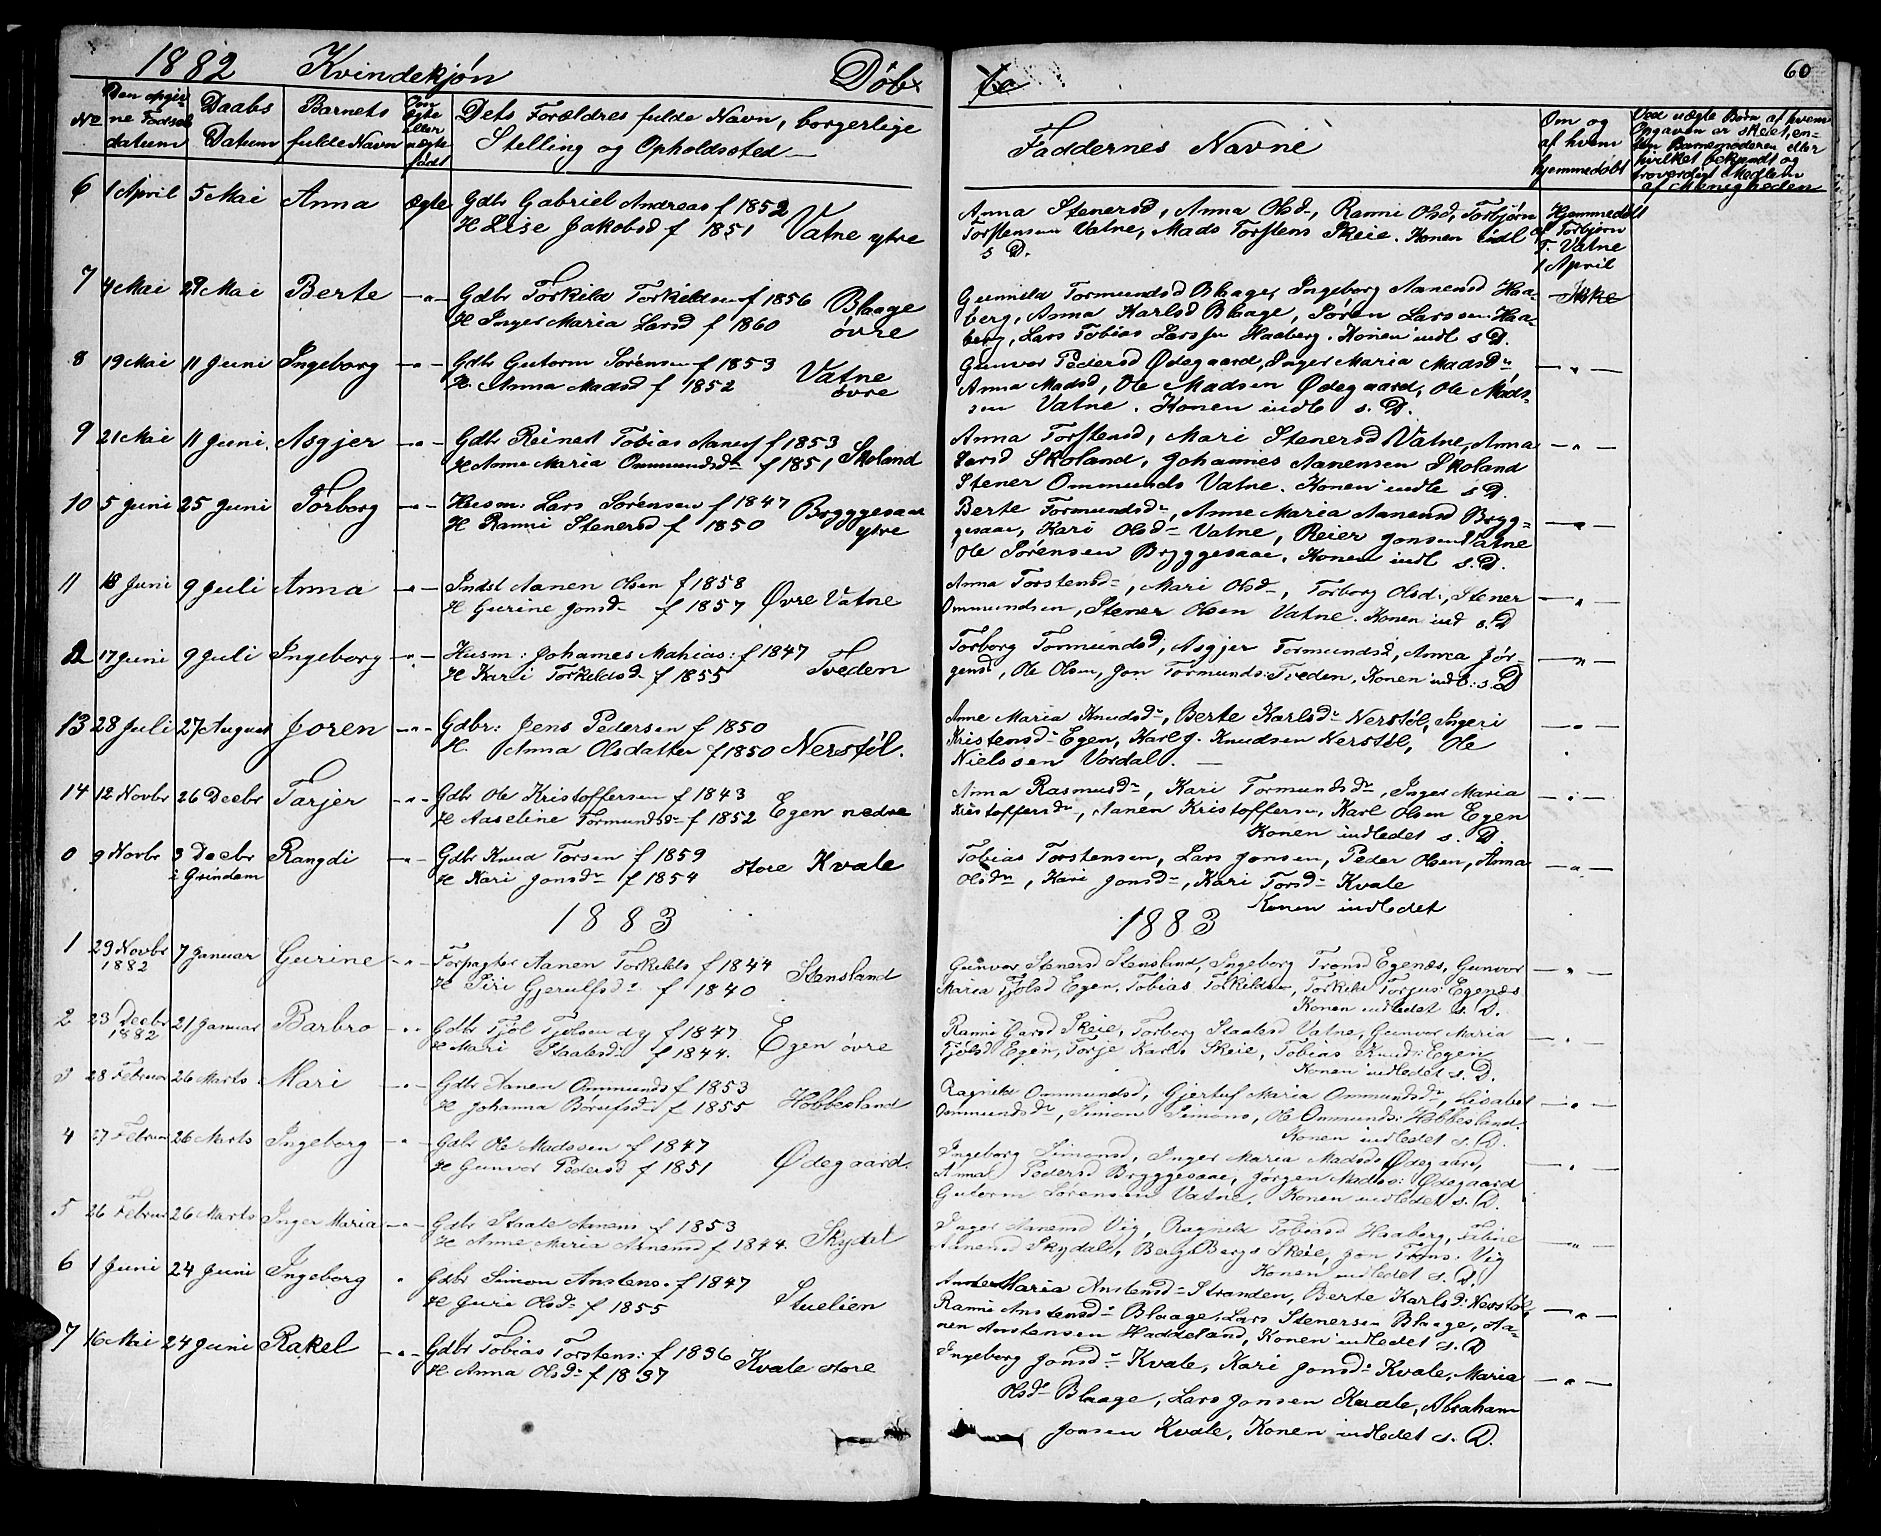 1882 Kvindekjøn Døb
te 60
No
Den opgiv
ne Fødsels
datum
Daabs
Datum
Barnets
fulde Navn
Om
ægte
eller
uægte
født
Dets Forældres fulde Navn, borgerlige
Stelling og Opholdssted
Faddernes Navne
Om og
af hvem
hjemmedøbt
Ved uægte Børn af hvem
Opgaven er skeet, en-
ten Barnemoderen eller
hvilket bekjendt og
troværdigt Medlem
af Menigheden
6 1 April 5 Mai Anna ægte Gdbr Gabriel Andreas f 1852
H Lise Jakobsd f 1851 Vatne ytre
Anna Stenersd, Anna Olsd, Ranni Olsd, Torbjørn
Torstensen Vatne, Mads Torstens Skeie. Konen indl
s D.
Hjemmedøbt
af Torbjørn
T. Vatne
1 April
7 4 Mai 29 Mai Berte -"- Gdbr Torkild Torkildsen f 1856
H Inger Maria Larsd f 1860 Blaage
øvre
Gunnild Tormundsd Blaage, Ingeborg Aanensd Haa-
berg, Anna Karlsd Blaage, Søren Larssen Haa-
berg, Lars Tobias Larssen Haaberg. Konen indl s D.
Ikke
8 19 Mai 11 Juni Ingeborg -"- Gdbr Gutorm Sørensen f 1853
H. Anna Madsd f 1852 Vatne
øvre
Gunvor Pedersd Ødegaard, Inger Maria Madsdr
Anna Madsd, Ole Madsen Ødegaard, Ole Mads-
sen Vatne. Konen indl s. D. -"-
9 21 Mai 11 Juni Asgjer -"- Gdbr Reinert Tobias Aanens f 1853
H Anne Maria Ommundsdr f 1851 Skoland
Anna Torstensd, Mari Stenersd Vatne, Anna
Larsd Skoland, Johannes Aanensen Skoland
Stener Ommunds Vatne. Konen indle s D. -"-
10 5 Juni 25 Juni Torborg -"- Husm: Lars Sørensen f 1847
H Ranni Stenersd f 1850 Bryggesaae
ytre
Berte Tormundsdr, Anne Maria Aanensd Bryg-
gesaae, Kari Olsd Vatne, Reier Jonsen Vatne
Ole Sørensen Bryggesaae. Konen indl s. D. -"-
11 18 Juni 9 Juli Anna -"- Indst Aanen Olsen f 1858
H Gurine Jonsd f 1857 Øvre Vatne
Anna Torstensd, Mari Olsd, Torborg Olsd, Stener
Ommundsen, Stener Olsen Vatne. Konen ind s. D -"-
12 17 Juni 9 Juli Ingeborg -"- Husm: Johannes Mathias: f 1847
H Kari Torkildsd f 1855 Tveden
Torborg Tormundsd, Asgjer Tormundsd, Anna Jør-
gensd, Ole Olsen, Jon Tormunds: Tveden. Konen indl: s. D -"-
13 28 Juli 27 August Joren -"- Gdbr: Jens Pedersen f 1850
H. Anna Olsdatter f 1850 Nerstøl.
Anne Maria Knudsdr, Berte Karlsdr Nerstøl, Ingeri
Kristensd Egen, Karl J. Knudsen Nerstøl, Ole
Nielssen Vordal. -"-
14 12 Novbr 26 Decbr Tarjer -"- Gdbr Ole Kristoffersen f 1843
H Aaseline Tormundsdr f 1852 Egen nedre
Anna Rasmusdr, Kari Tormundsdr, Inger Maria
Kristoffersdr, Aanen Kristoffersen, Karl Olsen Egen
Konen indledet s. D. -"-
0 9 Novbr 3 Decbr
i Grindem Rangdi -"- Gdbr Knud Torsen f 1859
H Kari Jonsdr f 1854 store Kvale
Tobias Torstensen, Lars Jonsen, Peder Olsen, Anna
Olsdr, Kari Jonsdr, Kari Torsd Kvale
Konen indledet -"-
1883 1883
1 29 Novbr
1882 7 Januar Gurine -"- Forpagter Aanen Torkilds f 1844
H Siri Gjerulfsdr f 1840 Stensland
Gunvor Stenersd Stensland, Ingeborg Tronsd Egenæs, Gunvor
Maria Tjølsd Egen, Tobias Torkildsen, Torkild Torjus: Egenæs
Konen indledet s. D. -"-
2 23 Decbr
1882 21 Januar Barbro -"- Gdbr Tjøl Tjølsen d y f 1847
H Mari Staalesdr f 1844. Egen øvre
Ranni Larsd Skeie, Torborg Staalesd Vatne, Gunvor Maria
Tjølsd Egen, Torje Karls Skeie, Tobias Knuds: Egen
Konen indledet s. D. -"-
3 28 Februar 26 Marts Mari -"- Gdbr Aanen Ommunds f 1853
H Johanna Børufsd f 1855 Hobbesland
Ragnild Ommundsd, Gjertuf Maria Ommundsdr, Lisabet
Ommundsdr, Simon Simons, Ole Ommunds: Hobbesland.
Konen indledet s. D. -"-
4 27 Februar 26 Marts Ingeborg -"- Gdbr Ole Madssen f 1847
H Gunvor Pedersd f 1851 Ødegaard.
Ingeborg Simonsd, Inger Maria Madsd Ødegaard,
Anna Pedersd Bryggesaae, Jørgen Madss: Ødegaard
Gutorm Sørensen Vatne. Konen indledet s. D. -"-
5 26 Februar 26 Marts Inger Maria -"- Gdbr Staale Aanens f 1853
H Anne Maria Aanensd f 1844. Skydal
Inger Aanensd Vig, Ragnild Tobiasd Haaberg, Saline
Aanensd Skydal, Berg Bergs Skeie, Jon Trons. Vig
Konen indledet s. D. -"-
6 1 Juni 24 Juni Ingeborg " Gdbr Simon Anstens. f 1847
H Guri Olsd f 1855 Stuelien
Anne Maria Anstensd Stranden, Berte Karlsd: Nerstøl
Ranni Anstensdr Blaage, Lars Stenersen Blaage, Aa-
nen Anstensen Haddeland, Konen indledet s. D -"-
7 16 Mai 24 Juni Rakel -"- Gdbr Tobias Torstens: f 1836
H. Anna Olsd f 1837 Kvale store
Ingeborg Jonsdr Kvale, Kari Jonsdr Kvale, Maria
Olsd Blaage, Lars Jonsen Kvale, Abraham
Jonsen Kvale, Konen indledet s. D. -"-